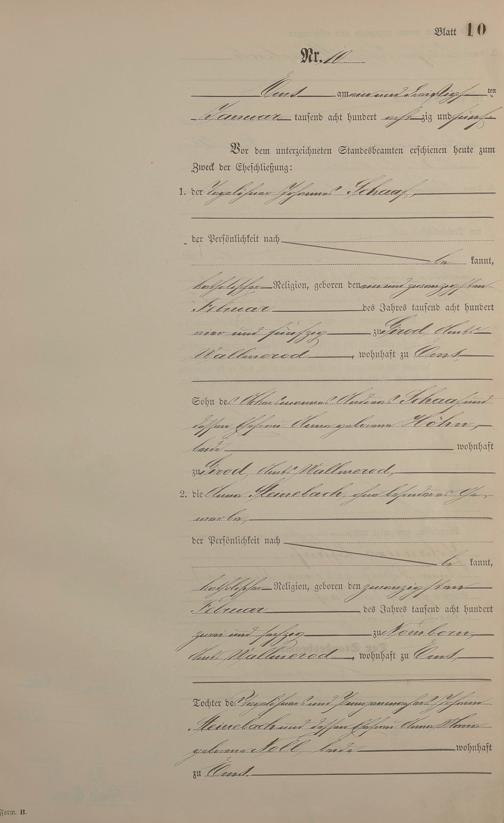 Blatt 10
Nr. 10
Ems am ein und dreißigsten
Januar tausend acht hundert achtzig und fünf
Vor dem unterzeichneten Standesbeamten erschienen heute zum
Zweck der Eheschließung:
1. der Tagelöhner Johannes Schaaf,
der Persönlichkeit nach
be kannt,
katholischer Religion, geboren den ein und zwanzigsten
Februar des Jahres tausend acht hundert
und fünfzig zu Girod Amts
Wallmerod, wohnhaft zu Ems
Sohn des Ackersmannes Andreas Schaaf und
dessen Ehefrau Anna geborene Höhn,
beide wohnhaft
zu Girod, Amts Wallmerod,
2. die Anna Meurebach, ohne besonderes Ge-
werbe,
der Persönlichkeit nach
be kannt,
katholischer Religion, geboren den zwanzigsten
Februar des Jahres tausend acht hundert
zwei und sechzig zu Nomborn,
Amts Wallmerod, wohnhaft zu Ems,
Tochter des Tagelöhners und Johann
Meurebach und dessen Ehefrau Anna Maria
geborene Noll, beide wohnhaft
zu Ems
Form. B.